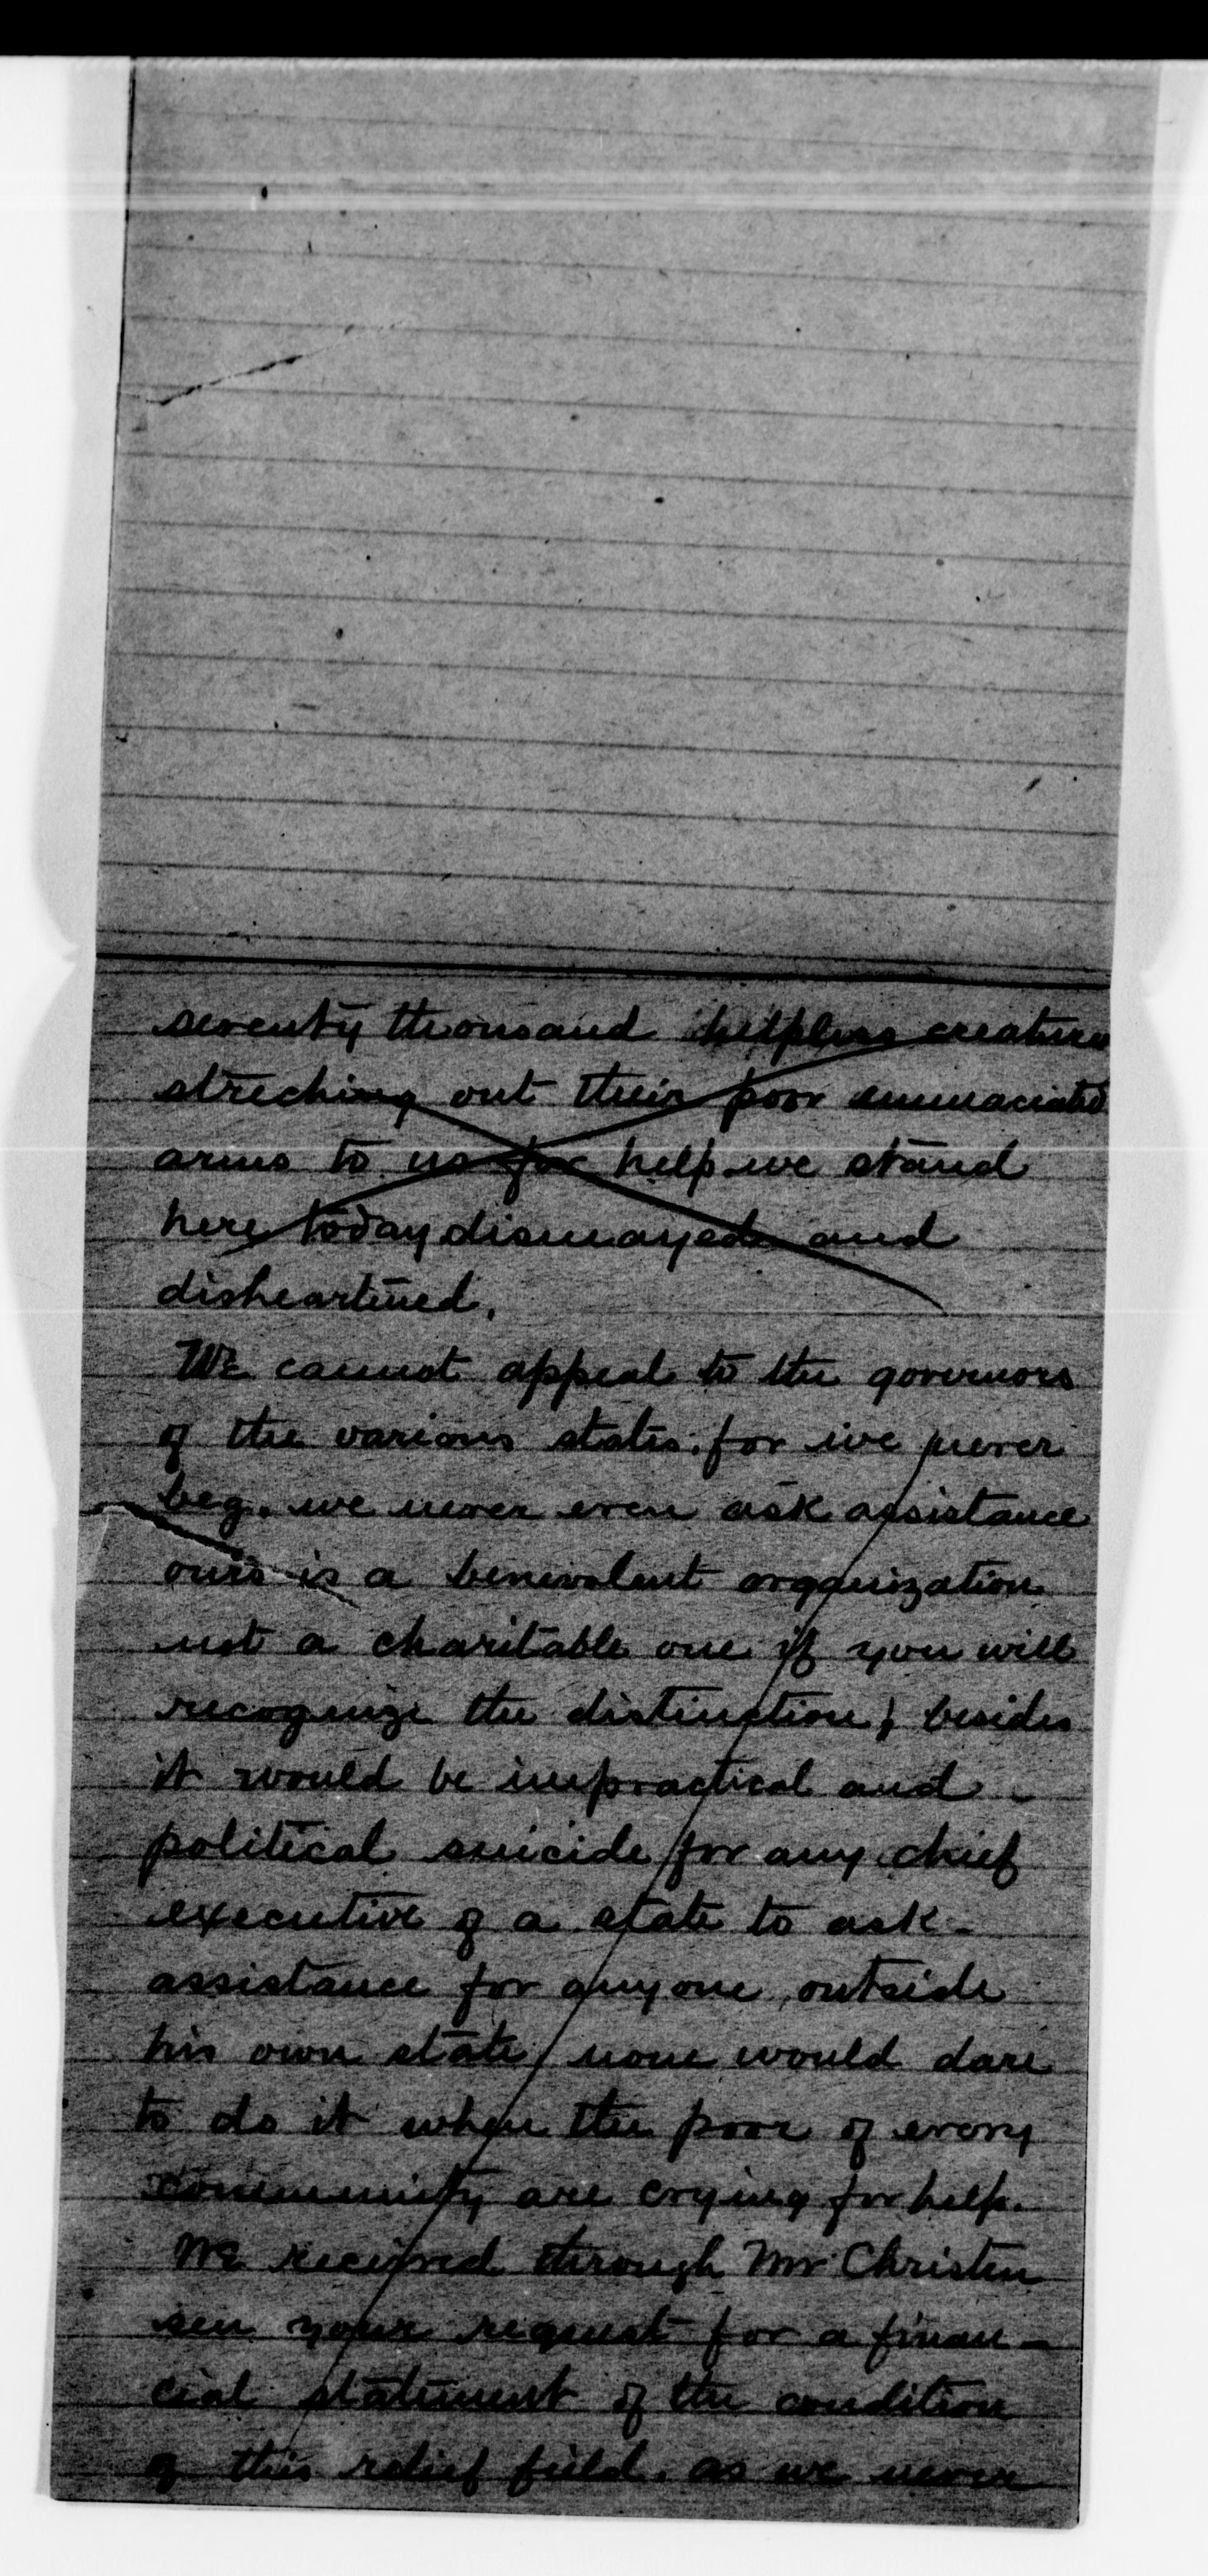 seventy thousand helpless creatures
streching out their poor emmaciated
arms to us for help we stand
here today dismayed and
disheartened.
We cannot appeal to the governors
of the various states, for we never
beg. we never even ask assistance
ours is a benevolent organization
not a charitable one if you will
recognize the distinction; besides
it would be impractical and
political suicide for any chief
executive of a state to ask
assistance for anyone outside
his own state, none would dare
to do it when the poor of every
community are crying for help.
We received through Mr Christen
sen your request for a finan-
cial statement of the condition
of this relief field. as we never